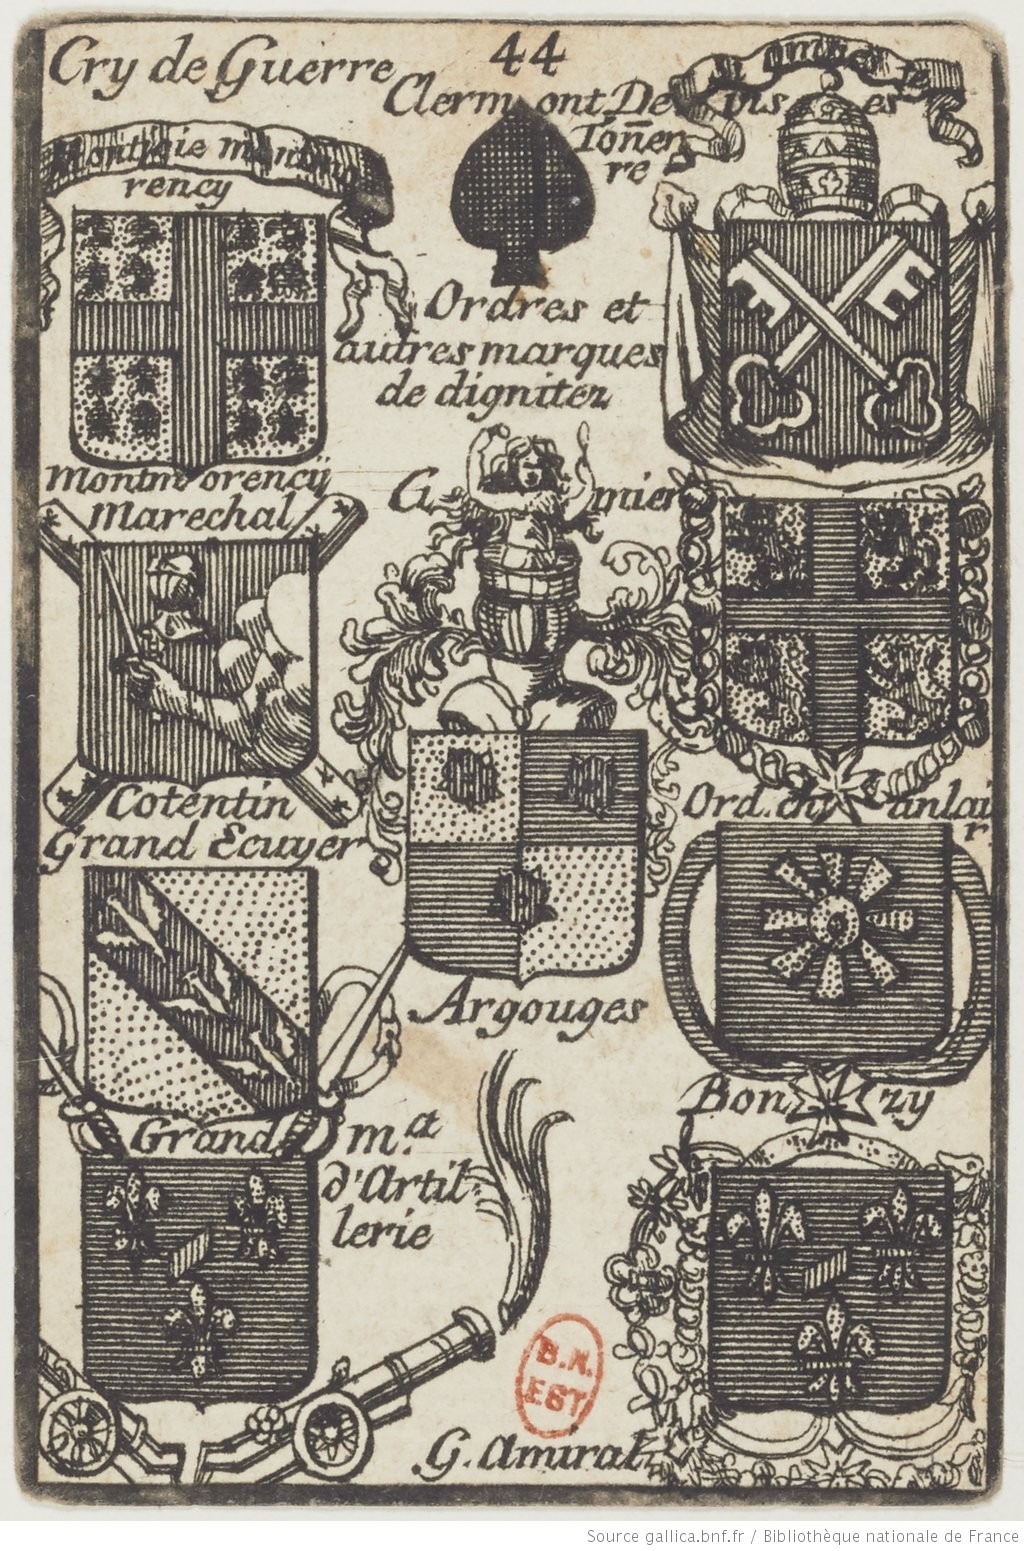 44
Cry de Guerre
Clermont De
Toñer
re
rency
Ordres et
autres marques
de dignitez
Montmorency
Marechal
G mier
Cotentin
Grand Ecuyer
Ord. du
r
Argouges
Bonzy
Grand mᵃ.
d'Artil
lerie
G. Amiral
B.N.
EST
Source gallica.bnf.fr / Bibliothèque nationale de France